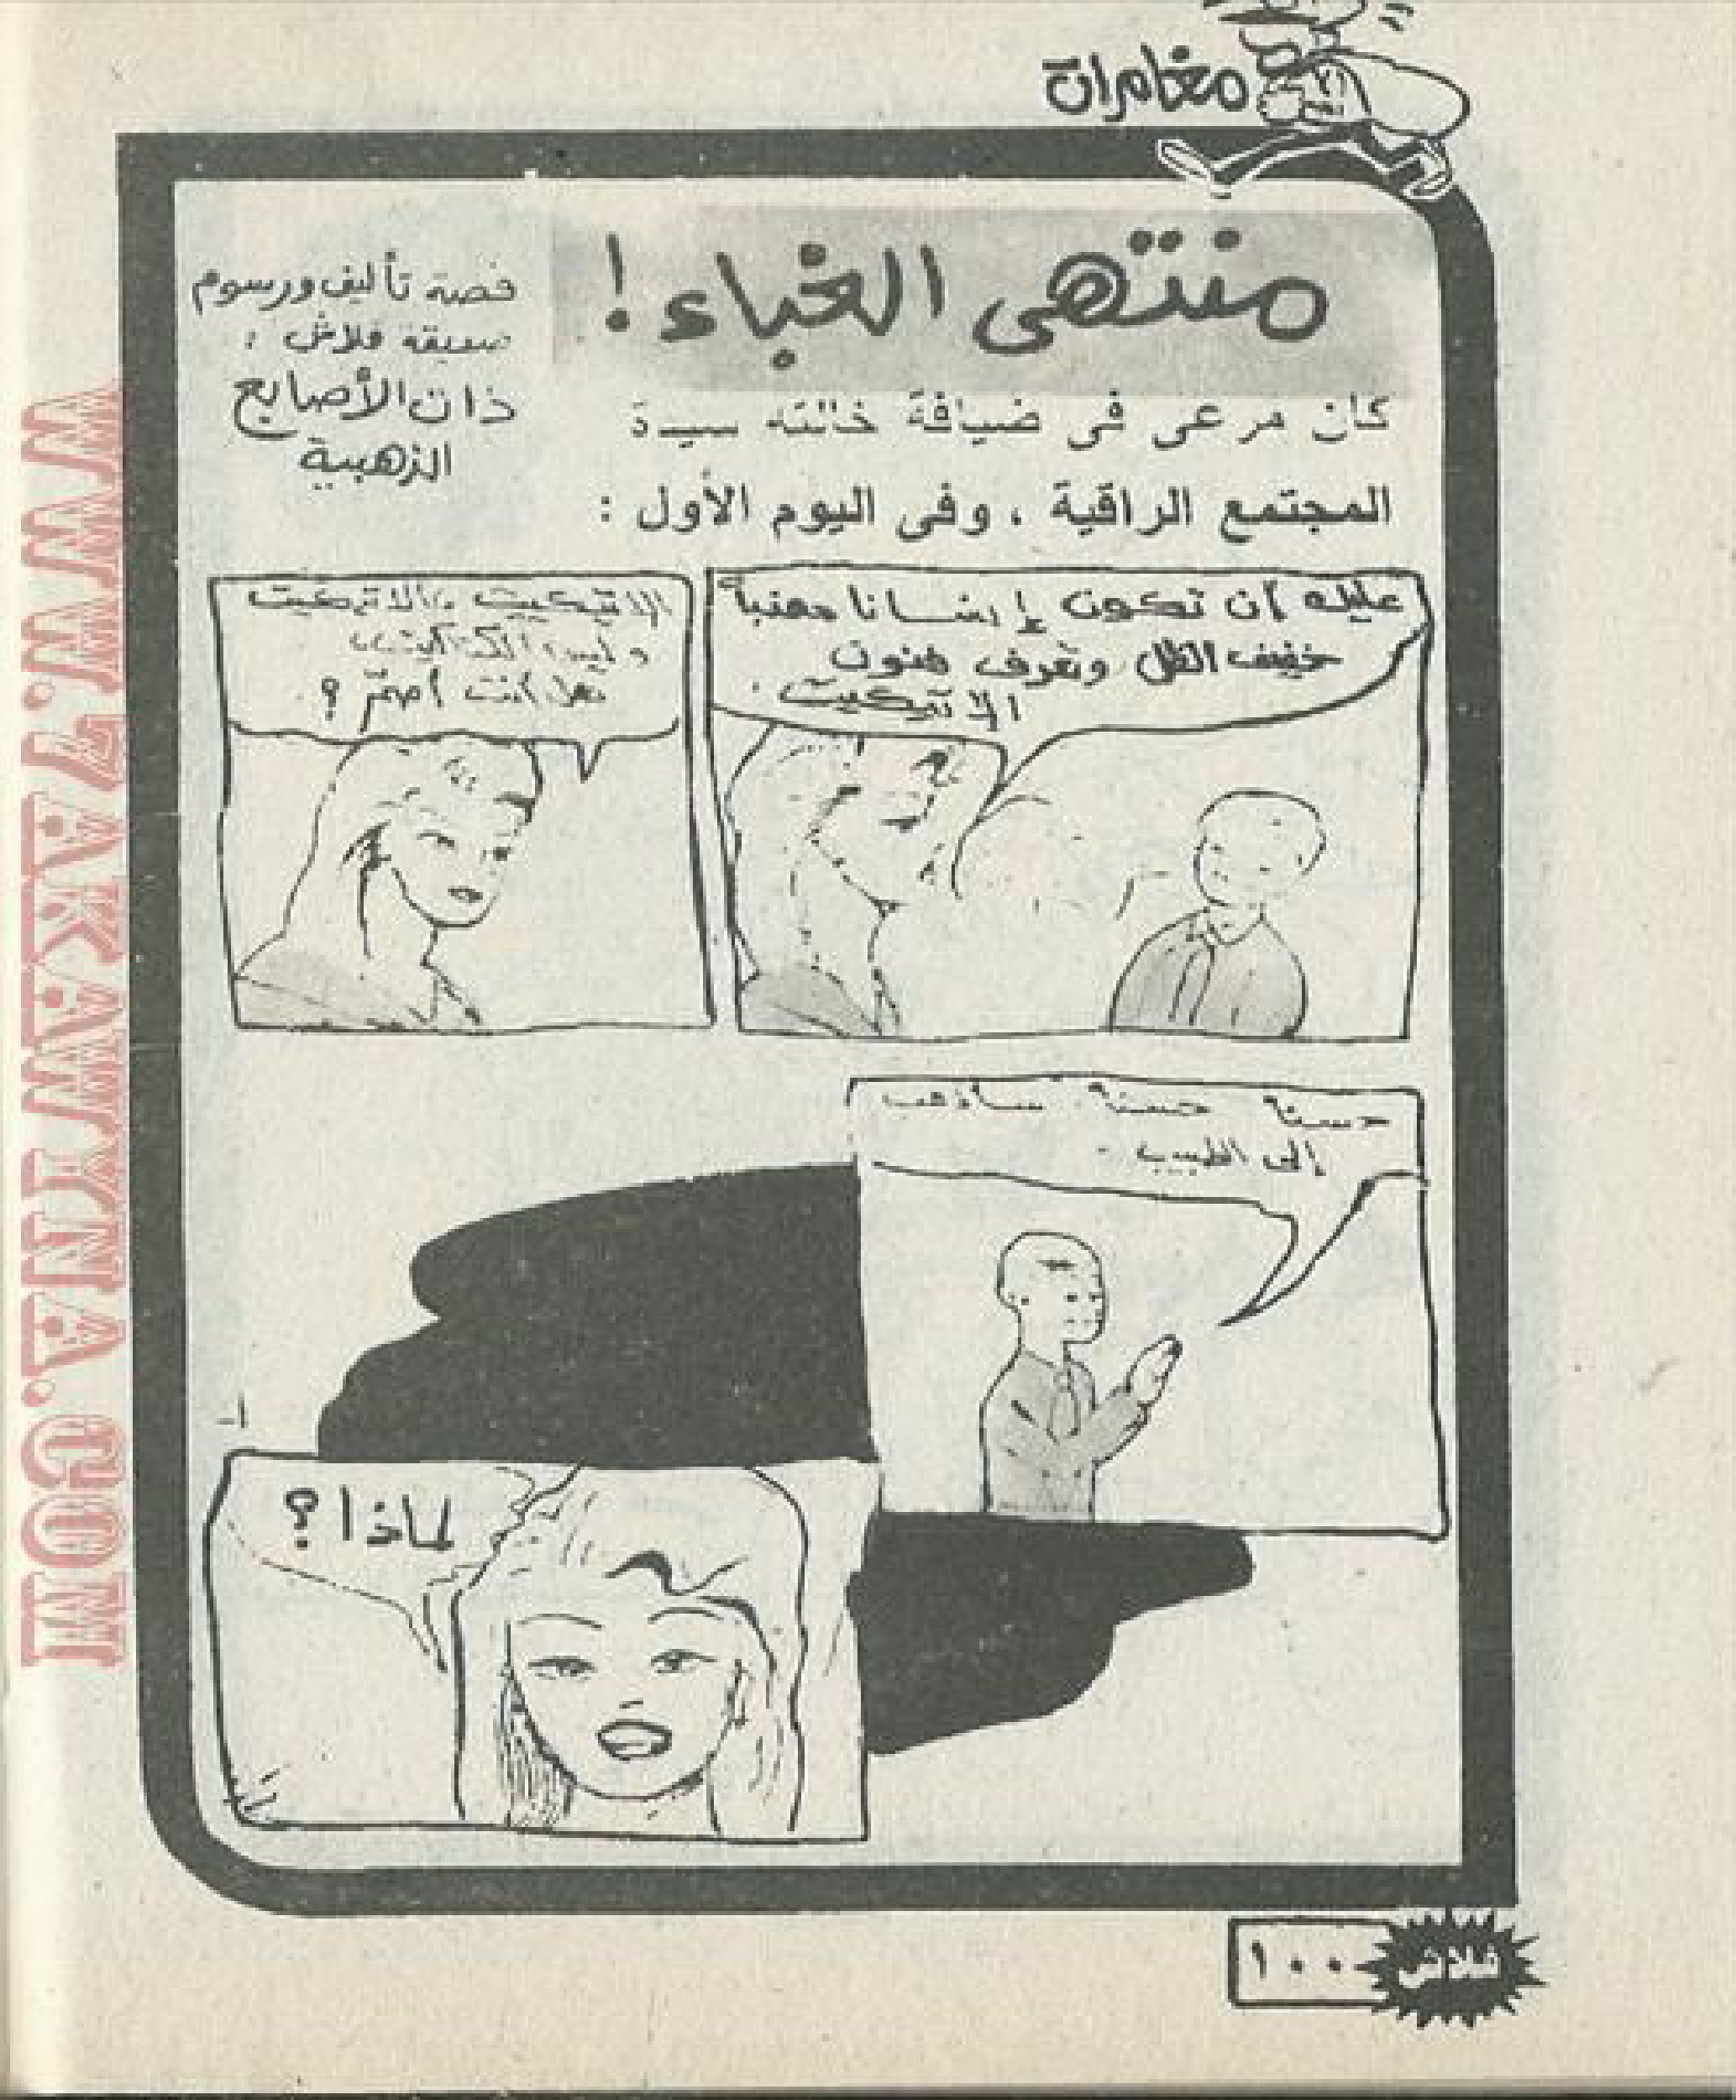 مغامرات
منتهى الغباء !
قصة تأليف ورسوم
صديقة فلاش :
ذات الأصابع
الذهبية
كان مرعى فى ضيافة خالته سيدة
المجتمع الراقية ، وفى اليوم الأول :
عليك أن تكون إنسانا مهذبا
خفيف الظل وتعرف فنون
الاتيكيت .
الاتيكيت .. الاتيكيت
وليس الكتاكيت
هل أنت أصمّ ؟
حسنا حسنا سأذهب
إلى الطبيب .
لماذا ؟
فلاش
١٠٠
WWW.7AKAWITNA.COM